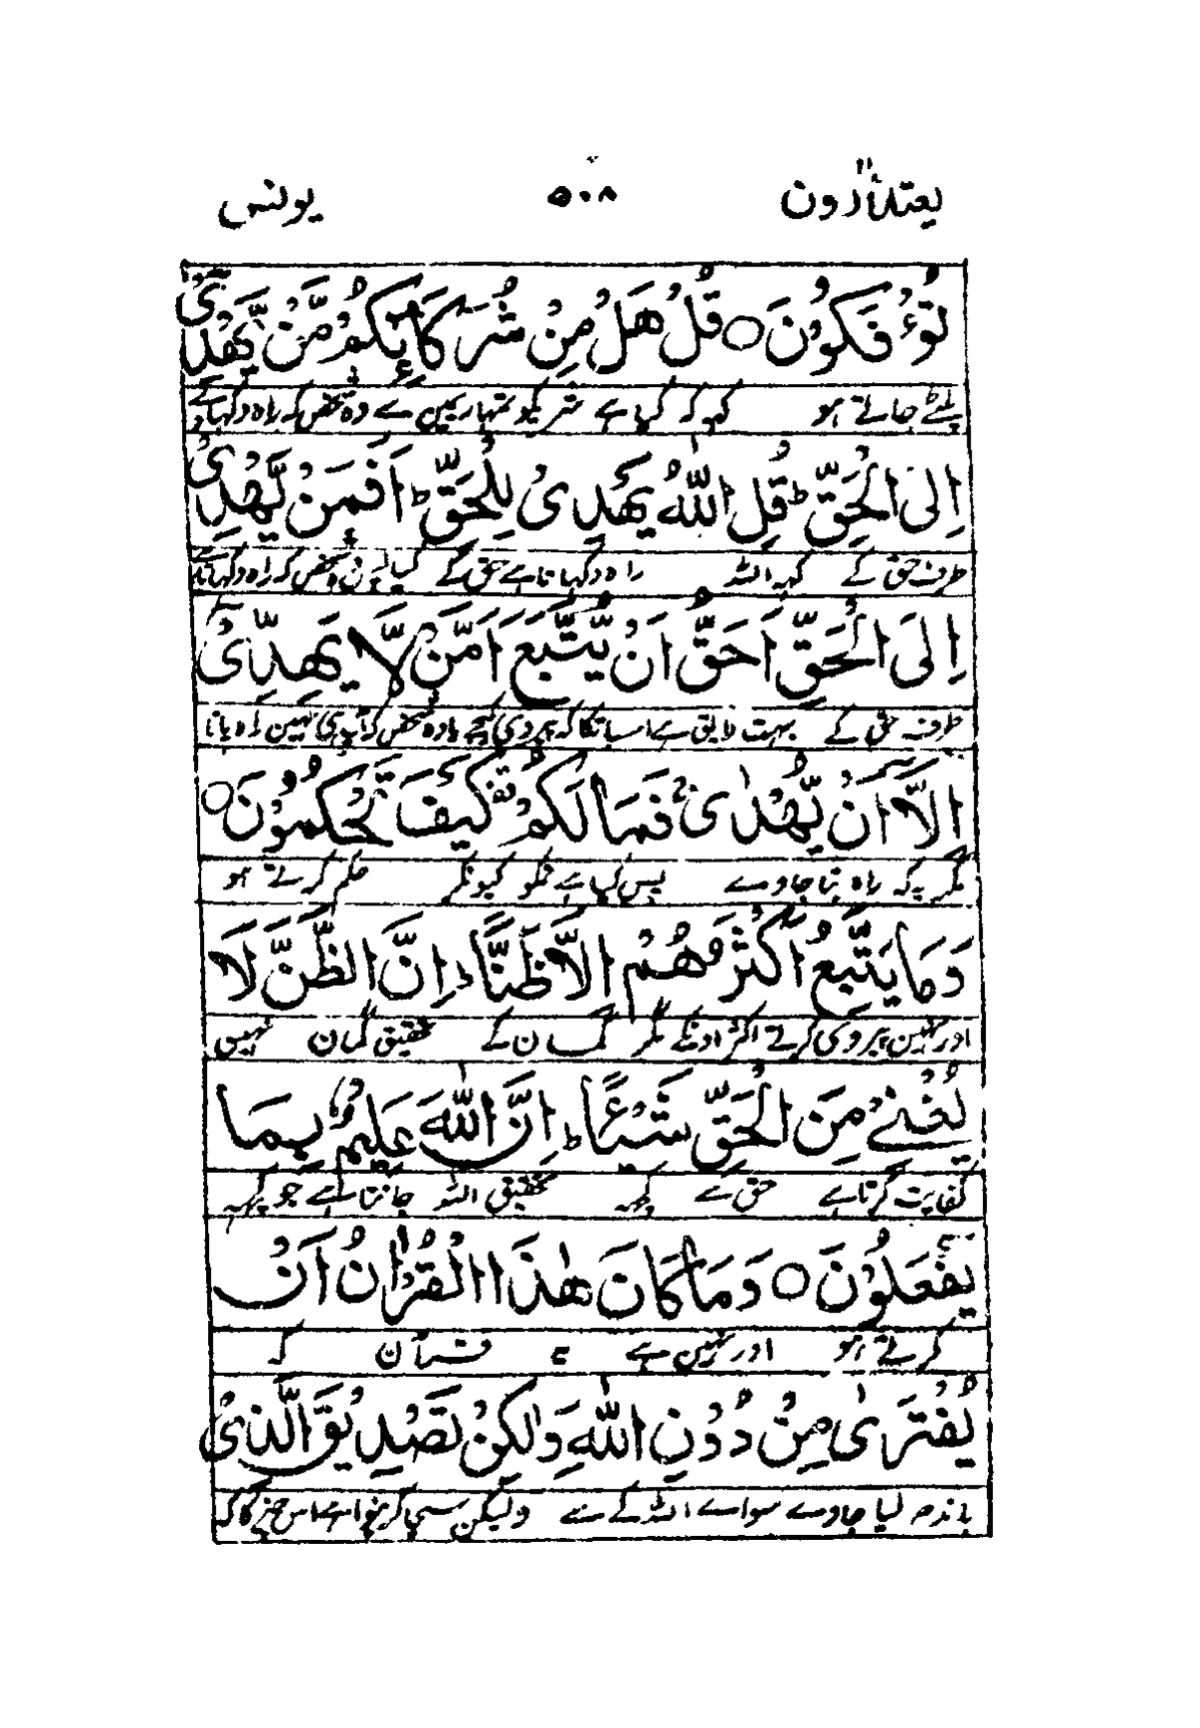 یعتذرون ۱۱ ۵۰۸ یونس
تُؤْفَكُوْنَ ○ قُلْ هَلْ مِنْ شُرَكَآئِكُمْ مَّنْ يَّهْدِیْۤ
پلٹے جاتے ہو کہہ کہ کیا ہے شریکو تمہاریمین سے وہ شخص کہ راہ دکھاوے
اِلَى الْحَقِّ ؕ قُلِ اللّٰهُ يَهْدِیْ لِلْحَقِّ ؕ اَفَمَنْ يَّهْدِیْۤ
طرف حق کے کہہ اللہ راہ دکھاتا ہے حق کے کیا پس شخص کہ راہ دکھاتا ہے
اِلَى الْحَقِّ اَحَقُّ اَنْ يُّتَّبَعَ اَمَّنْ لَّا يَهِدِّیْۤ
طرف حق کے بہت لایق ہے اسباتکا کہ پیروی کیجے یا وہ شخص کہ آپ ہی نہین راہ پاتا
اِلَّاۤ اَنْ يُّهْدٰى ۚ فَمَا لَكُمْ كَيْفَ تَحْكُمُوْنَ ○
مگر یہ کہ راہ بتا جاوے پس کیا ہے تمکو کیونکر حکم کرتے ہو
وَمَا يَتَّبِعُ اَكْثَرُهُمْ اِلَّا ظَنًّا ؕ اِنَّ الظَّنَّ لَا
اور نہین پیروی کرتے اکثر اونکے مگر گمان کے تحقیق گمان نہین
يُغْنِیْ مِنَ الْحَقِّ شَيْئًا ؕ اِنَّ اللّٰهَ عَلِيْمٌۢ بِمَا
کفایت کرتا ہے حق سے کچھہ تحقیق اللہ جانتا ہے جو کچھہ
يَفْعَلُوْنَ ○ وَمَا كَانَ هٰذَا الْقُرْاٰنُ اَنْ
کرتے ہو اور نہین ہے یہ قرآن کہ
يُّفْتَرٰى مِنْ دُوْنِ اللّٰهِ وَلٰكِنْ تَصْدِيْقَ الَّذِیْ
باندھ لیا جاوے سواے اللہ کے سے ولیکن سچا کرنیوالا ہے اس چیز کا کہ